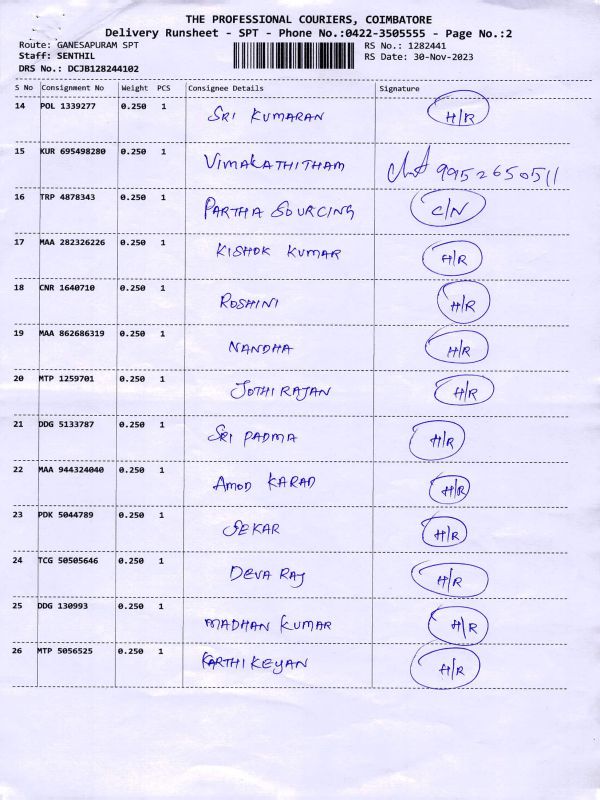 THE PROFESSIONAL COURIERS, COIMBATORE
Delivery Runsheet - SPT - Phone No.:0422-3505555 - Page No.:2
Route: GANESAPURAM SPT RS No.: 1282441
Staff: SENTHIL RS Date: 30-Nov-2023
DRS No.: DCJB128244102
S No Consignment No Weight PCS Consignee Details Signature
14 POL 1339277 0.250 1 SRI KUMARAN H/R
15 KUR 695498280 0.250 1 VIMAKATHITHAM 9952650511
16 TRP 4878343 0.250 1 PARTHA SOURCING C/N
17 MAA 282326226 0.250 1 KISHOK KUMAR H/R
18 CNR 1640710 0.250 1 ROSHINI H/R
19 MAA 862686319 0.250 1 NANDHA H/R
20 MTP 1259701 0.250 1 JOTHI RAJAN H/R
21 DDG 5133787 0.250 1 SRI PADMA H/R
22 MAA 944324040 0.250 1 AMOD KARAD H/R
23 PDK 5044789 0.250 1 SEKAR H/R
24 TCG 50505646 0.250 1 DEVA RAJ H/R
25 DDG 130993 0.250 1 MADHAN KUMAR H/R
26 MTP 5056525 0.250 1 KARTHIKEYAN H/R